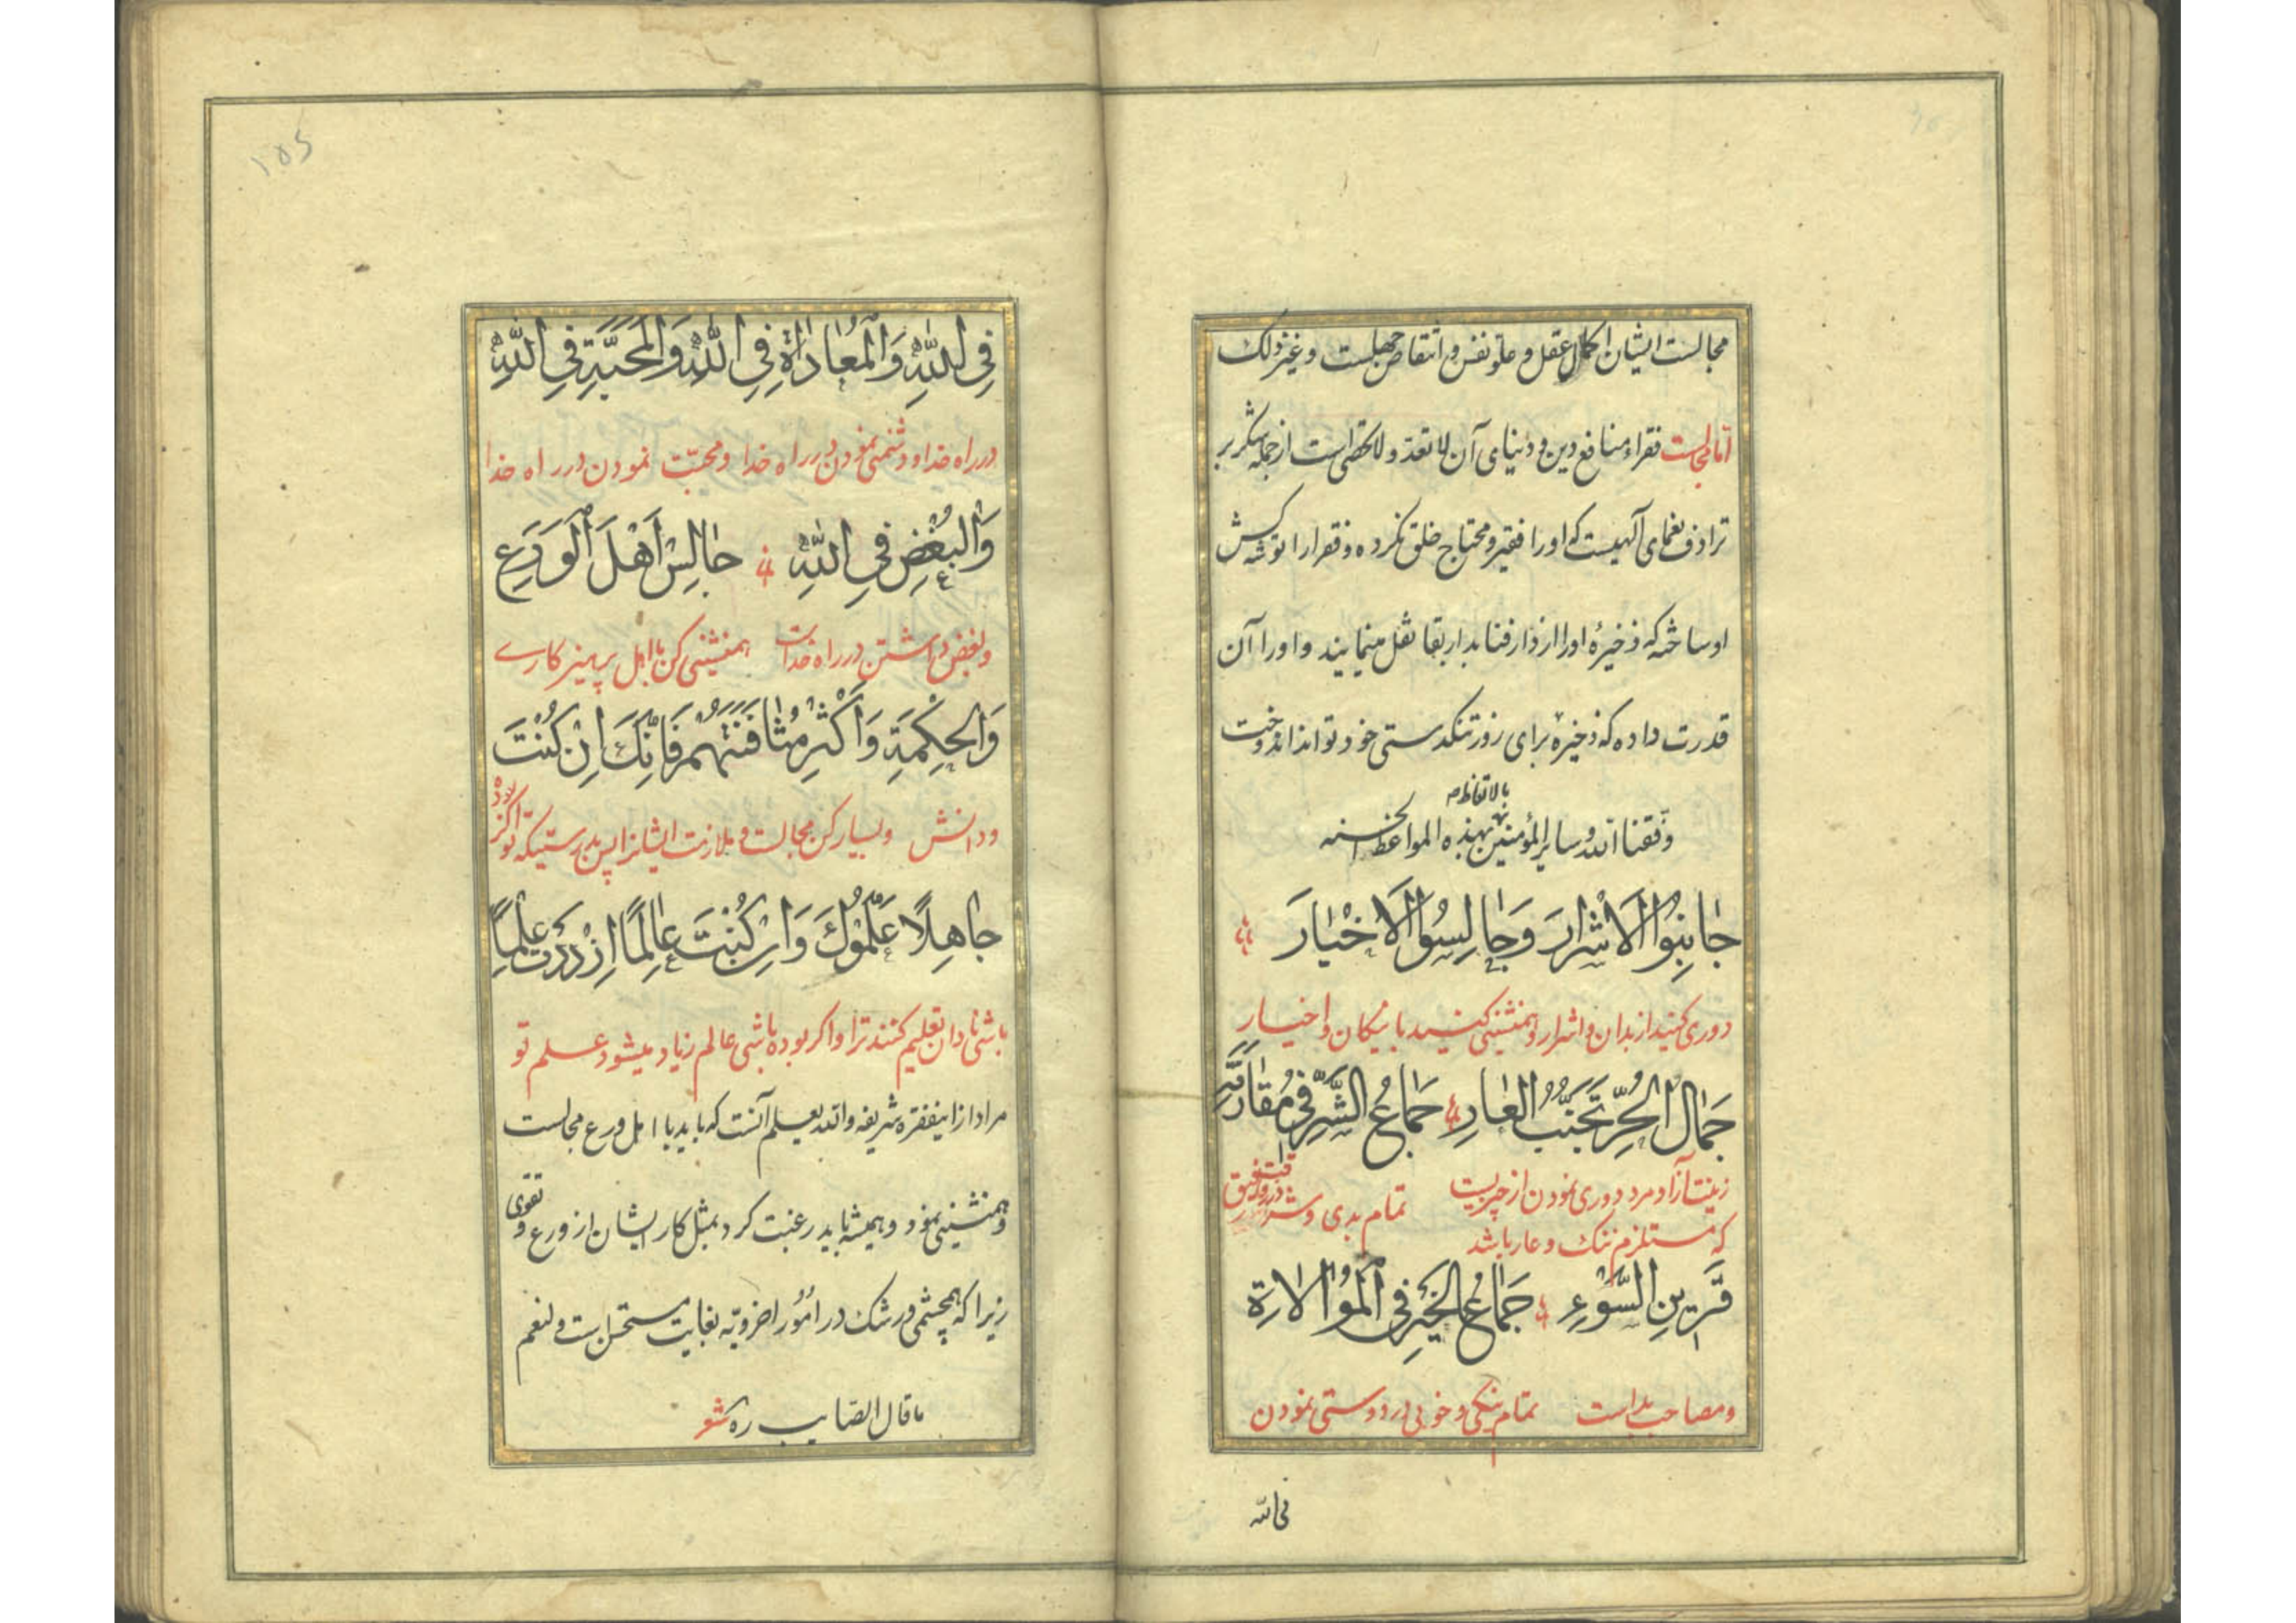 مجالست ایشان اکمال عقل و علو نفس و انتقاص جهلست و غیر ذلک
اما مجالست فقراء منافع دین و دنیای آن لا تعدّ و لا تحصی است از جمله شکر بر
ترادف نعمای آلهیست که او را فقیر و محتاج خلق نکرده و فقرا را توشه کش
او ساخته که ذخیرهٔ او را از دار فنا بدار بقا نقل مینمایند و او را آن
قدرت داده که ذخیره برای روز تنگدستی خود تواند اندوخت
وفّقنا الله و سایر المؤمنین بالاتعاظ بهذه المواعظ الحسنه
جٰانِبُوا الْاَشْرٰارَ وَجٰالِسُوا الْاَخْیٰارَ
دوری کنید از بدان و اشرار و همنشینی کنید با نیکان و اخیار
جَمٰالُ الْحُرِّ تَجَنُّبُ الْعٰارِ جِمٰاعُ الشَّرِّ فِی مُقٰارَنَةِ
زینت آزاد مرد دوری نمودن از چیزیست که مستلزم ننک و عار باشد تمام بدی و شر در رفاقت
قَرِینِ السَّوْءِ جِمٰاعُ الْخَیْرِ فِی الْمُوٰالاةِ
و مصاحب بد است تمام نیکی و خوبی در دوستی نمودن
فی الله
۱۵۵
فِی اللّٰهِ وَالْمُعٰادٰاةِ فِی اللّٰهِ وَالْمَحَبَّةِ فِی اللّٰهِ
در راه خدا و دشمنی نمودن در راه خدا و محبّت نمودن در راه خدا
وَالْبُغْضِ فِی اللّٰهِ جٰالِسْ اَهْلَ الْوَرَعِ
و بغض داشتن در راه خداست همنشینی کن با اهل پرهیزکاری
وَالْحِکْمَةِ وَاَکْثِرْ مُثٰافَنَتَهُمْ فَاِنَّکَ اِنْ کُنْتَ
و دانش و بسیار کن مجالست و ملازمت ایشانرا پس بدرستیکه تو اگر بوده
جٰاهِلًا عَلَّمُوکَ وَاِنْ کُنْتَ عٰالِمًا اِزْدَدْتَ عِلْمًا
باشی نادان تعلیم کنند ترا و اگر بوده باشی عالم زیاد میشود علم تو
مراد از اینفقره شریفه والله یعلم آنست که باید با اهل ورع مجالست
و همنشینی نمود و همیشه باید رغبت کرد بمثل کار ایشان از ورع و تقوی
زیرا که همچشمی و رشک در امور اخرویّه بغایت مستحسن است و لنعم
ما قال الصّایب ره شعر